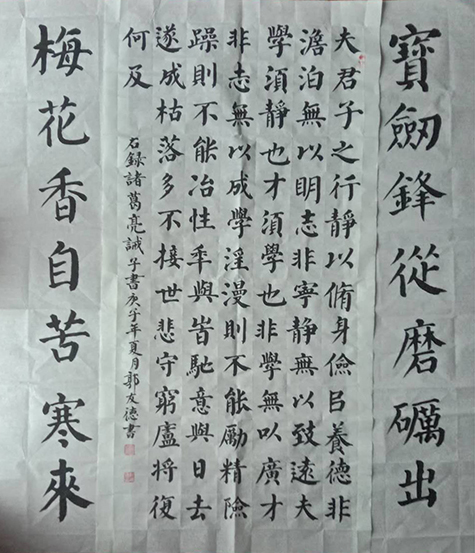 寶劒鋒從磨礪出
夫君子之行靜以脩身儉㠯養德非
澹泊無以明志非寧靜無以致遠夫
學須靜也才須學也非學無以廣才
非志無以成學淫漫則不能勵精險
躁則不能冶性秊與旹馳意與日去
遂成枯落多不接世悲守窮廬將復
何及
右録諸葛亮誡子書庚子年夏月郭友德書
梅花香自苦寒來